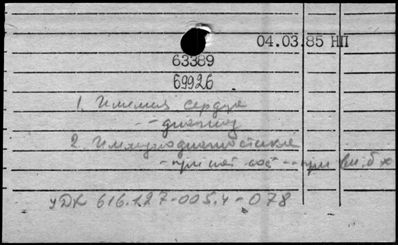 04.03.85 НП
63389
69926
1. Ишемия сердца
-- диагноз
2. Иммунодиагностика
- при -- при
УДК 616.127-005.4-078